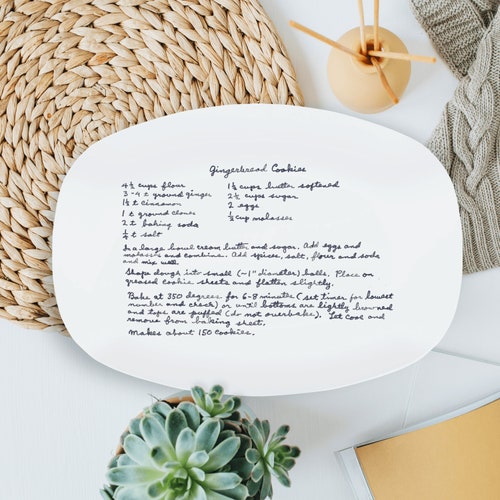 Gingerbread Cookies
4½ cups flour
3-4 t ground ginger
1½ t cinnamon
1 t ground cloves
2 t baking soda
½ t salt
1½ cups butter softened
2½ cups sugar
2 eggs
½ cup molasses
In a large bowl cream butter and sugar. Add eggs and
molasses and combine. Add spices, salt, flour and soda
and mix well.
Shape dough into small (~1" diameter) balls. Place on
greased cookie sheets and flatten slightly.
Bake at 350 degrees for 6-8 minutes (set timer for lowest
number and check) or until bottoms are lightly browned
and tops are puffed (do not overbake). Let cool and
remove from baking sheet.
Makes about 150 cookies.